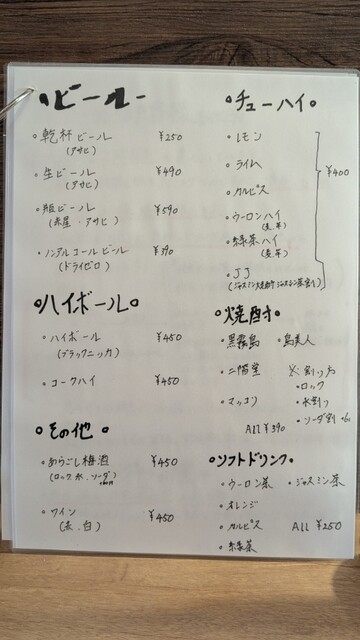 ・ビール・
・乾杯ビール ¥250
(アサヒ)
・生ビール ¥490
(アサヒ)
・瓶ビール ¥590
(赤星・アサヒ)
・ノンアルコールビール ¥390
(ドライゼロ)
・ハイボール・
・ハイボール ¥450
(ブラックニッカ)
・コークハイ ¥450
・その他・
・あらごし梅酒 ¥450
(ロック.水.ソーダ)
・ワイン ¥450
(赤.白)
・チューハイ・
・レモン
・ライム
・カルピス
・ウーロンハイ
・緑茶ハイ
・JJ
¥400
・焼酎・
・黒霧島 ・島美人
・二階堂 ※割り方
・ロック
・マッコリ ・水割り
・ソーダ割
All ¥390
・ソフトドリンク・
・ウーロン茶 ・ジャスミン茶
・オレンジ
・カルピス ALL ¥250
・緑茶